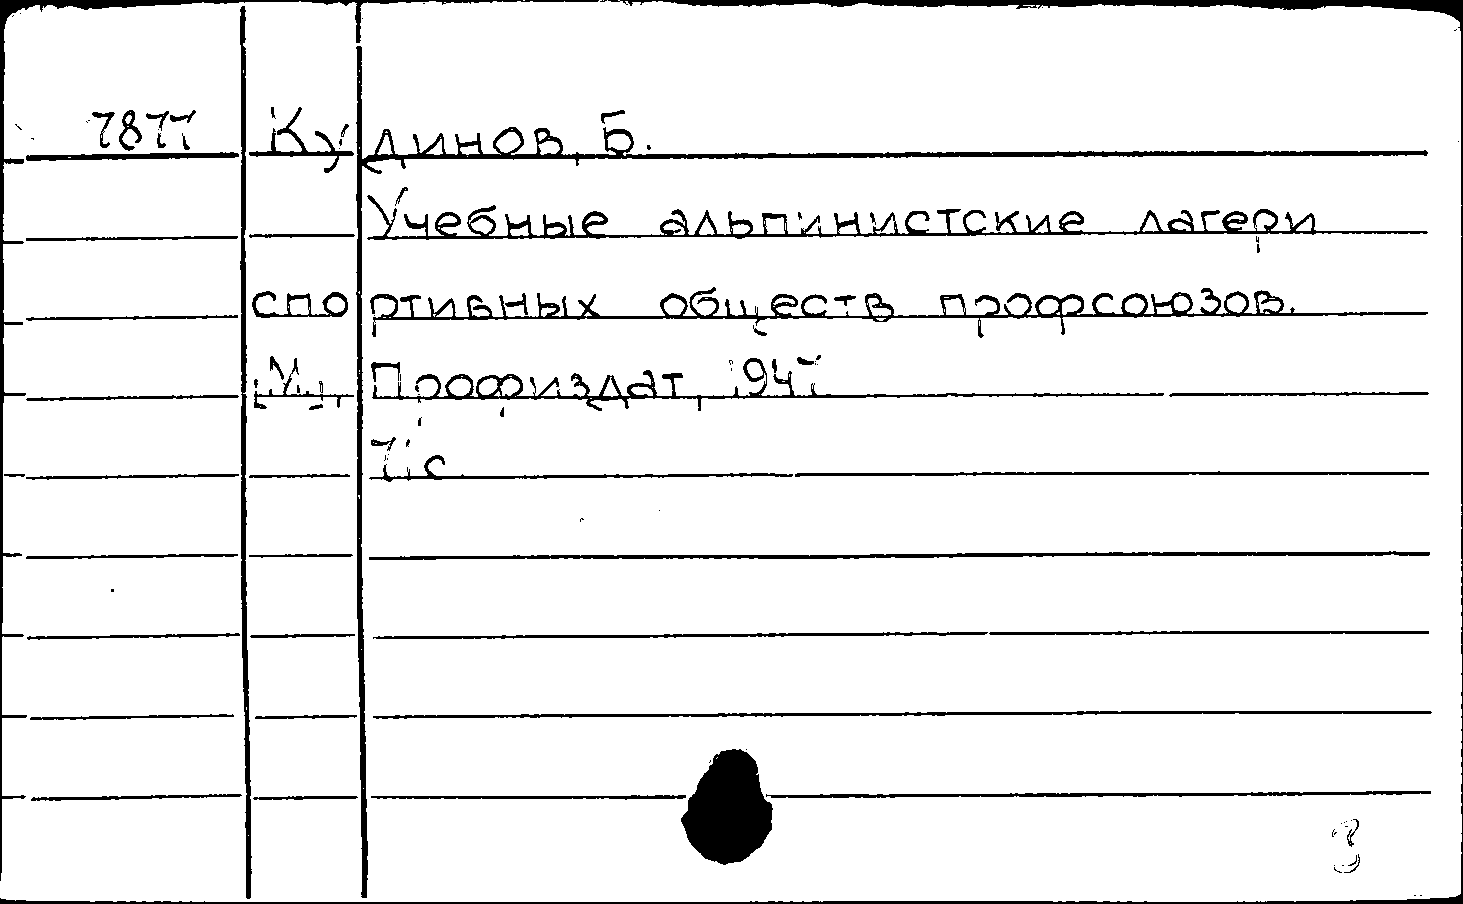 7877 Кудинов, Б.
Учебные альпинистские лагери
спортивных обществ профсоюзов.
[М.], Профиздат, 1947
71 с